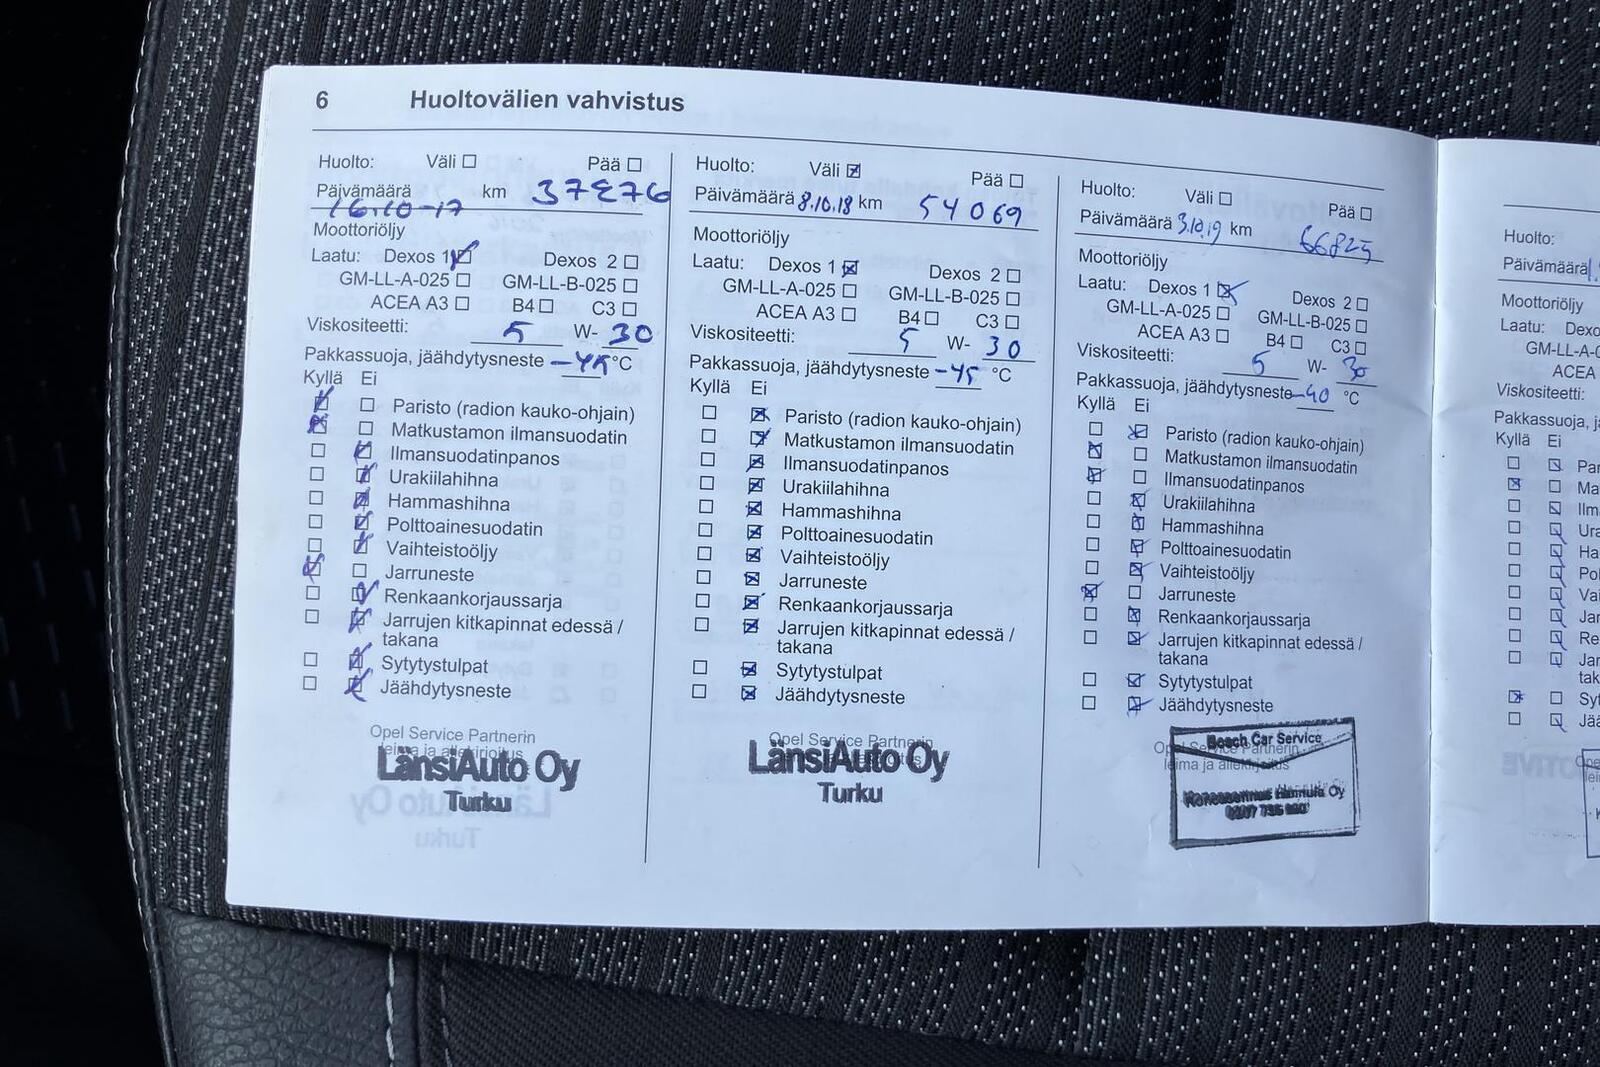 6 Huoltovälien vahvistus
Huolto: Väli ☐ Pää ☐
Päivämäärä 16.10-17 km 37276
Moottoriöljy
Laatu: Dexos 1 ☒ Dexos 2 ☐
GM-LL-A-025 ☐ GM-LL-B-025 ☐
ACEA A3 ☐ B4 ☐ C3 ☐
Viskositeetti: 5 W- 30
Pakkassuoja, jäähdytysneste -45 °C
Kyllä Ei
☒ ☐ Paristo (radion kauko-ohjain)
☒ ☐ Matkustamon ilmansuodatin
☐ ☒ Ilmansuodatinpanos
☐ ☒ Urakiilahihna
☐ ☒ Hammashihna
☐ ☒ Polttoainesuodatin
☐ ☒ Vaihteistoöljy
☒ ☐ Jarruneste
☐ ☒ Renkaankorjaussarja
☐ ☒ Jarrujen kitkapinnat edessä /
takana
☐ ☒ Sytytystulpat
☐ ☒ Jäähdytysneste
Opel Service Partnerin
leima ja allekirjoitus
LänsiAuto Oy
Turku
Huolto: Väli ☒ Pää ☐
Päivämäärä 8.10.18 km 54069
Moottoriöljy
Laatu: Dexos 1 ☒ Dexos 2 ☐
GM-LL-A-025 ☐ GM-LL-B-025 ☐
ACEA A3 ☐ B4 ☐ C3 ☐
Viskositeetti: 5 W- 30
Pakkassuoja, jäähdytysneste -45 °C
Kyllä Ei
☐ ☒ Paristo (radion kauko-ohjain)
☐ ☒ Matkustamon ilmansuodatin
☐ ☒ Ilmansuodatinpanos
☐ ☒ Urakiilahihna
☐ ☒ Hammashihna
☐ ☒ Polttoainesuodatin
☐ ☒ Vaihteistoöljy
☐ ☒ Jarruneste
☐ ☒ Renkaankorjaussarja
☐ ☒ Jarrujen kitkapinnat edessä /
takana
☐ ☒ Sytytystulpat
☐ ☒ Jäähdytysneste
Opel Service Partnerin
LänsiAuto Oy
Turku
Huolto: Väli ☐ Pää ☐
Päivämäärä 3.10.19 km 66825
Moottoriöljy
Laatu: Dexos 1 ☒ Dexos 2 ☐
GM-LL-A-025 ☐ GM-LL-B-025 ☐
ACEA A3 ☐ B4 ☐ C3 ☐
Viskositeetti: 5 W- 30
Pakkassuoja, jäähdytysneste -40 °C
Kyllä Ei
☐ ☒ Paristo (radion kauko-ohjain)
☒ ☐ Matkustamon ilmansuodatin
☒ ☐ Ilmansuodatinpanos
☐ ☒ Urakiilahihna
☐ ☒ Hammashihna
☐ ☒ Polttoainesuodatin
☐ ☒ Vaihteistoöljy
☒ ☐ Jarruneste
☐ ☒ Renkaankorjaussarja
☐ ☒ Jarrujen kitkapinnat edessä /
takana
☐ ☒ Sytytystulpat
☐ ☒ Jäähdytysneste
Opel Service Partnerin
leima ja allekirjoitus
Bosch Car Service
Oy
Huolto:
Päivämäärä
Moottoriöljy
Laatu: Dexo
GM-LL-A-0
ACEA
Viskositeetti:
Pakkassuoja, j
Kyllä Ei
☐ ☒ Par
☒ ☐ Ma
☐ ☒ Ilm
☐ ☒ Ura
☐ ☒ Ha
☐ ☒ Pol
☐ ☒ Vai
☐ ☒ Jar
☐ ☒ Re
☐ ☒ Jar
tak
☒ ☐ Syt
☐ ☒ Jää